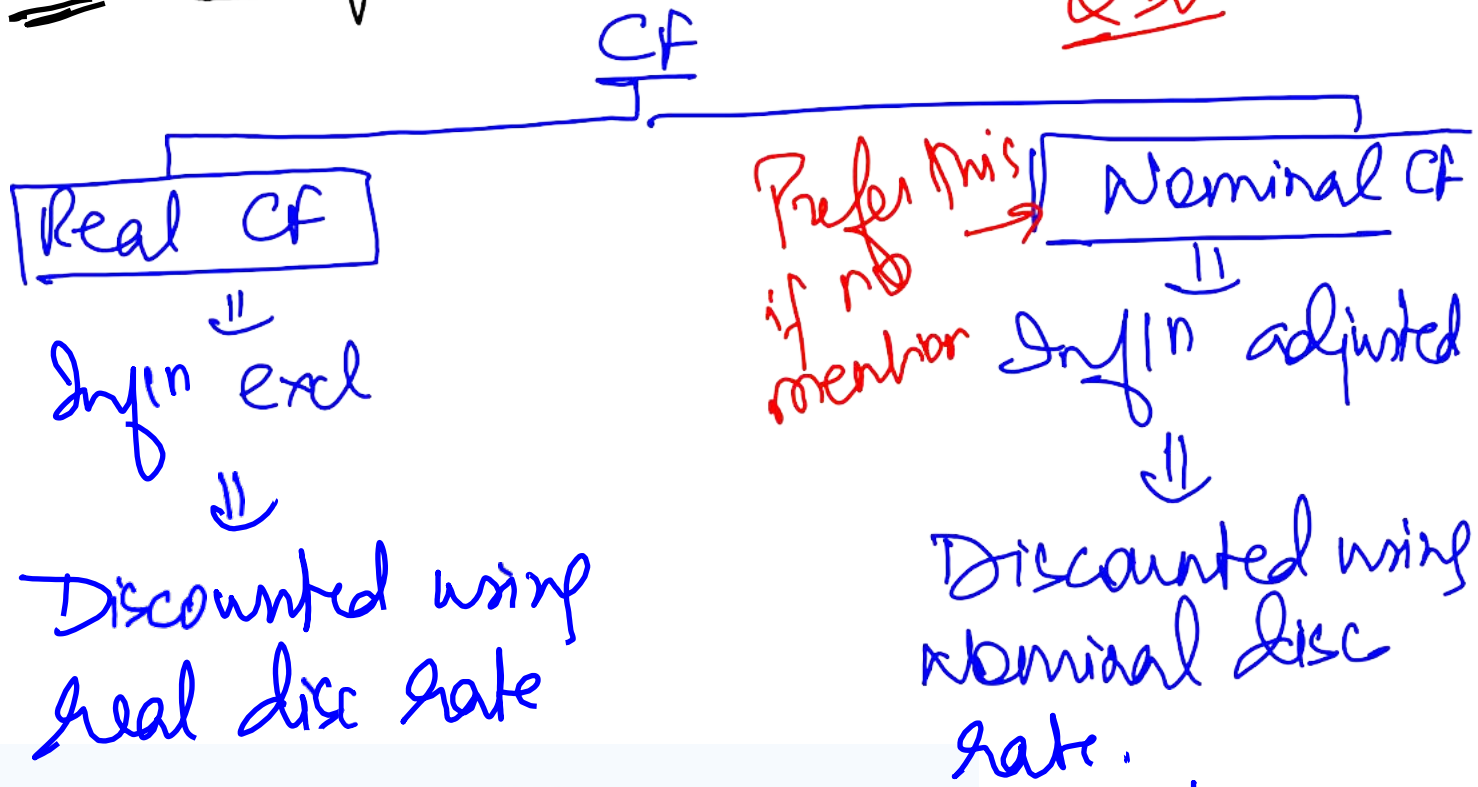 CF
Real CF
Infln excl
Discounted using
real disc rate
Prefer this
if no
mention
Nominal CF
Infln adjusted
Discounted using
Nominal disc
rate.